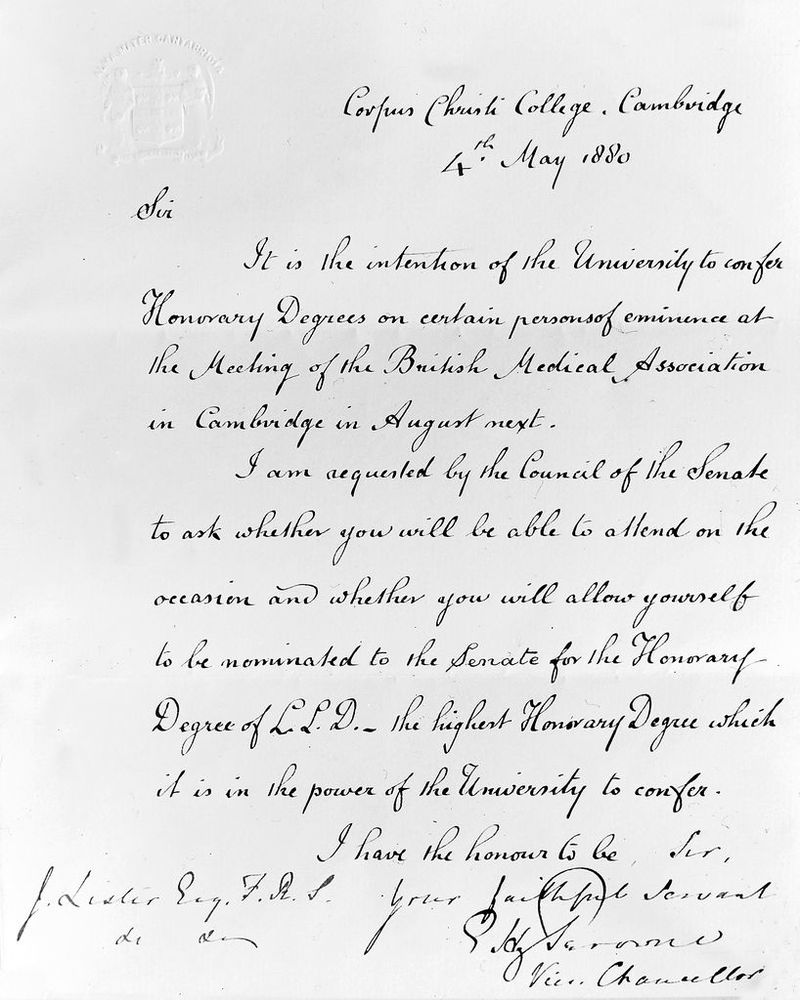 ALMA MATER CANTABRIGIA
Corpus Christi College. Cambridge
4th May 1880
Sir
It is the intention of the University to confer
Honorary Degrees on certain persons of eminence at
the Meeting of the British Medical Association
in Cambridge in August next.
I am requested by the Council of the Senate
to ask whether you will be able to attend on the
occasion and whether you will allow yourself
to be nominated to the Senate for the Honorary
Degree of L.L.D. - the highest Honorary Degree which
it is in the power of the University to confer.
I have the honour to be, Sir,
J. Lister Esq. F.R.S. Your faithful Servant
Vice. Chancellor